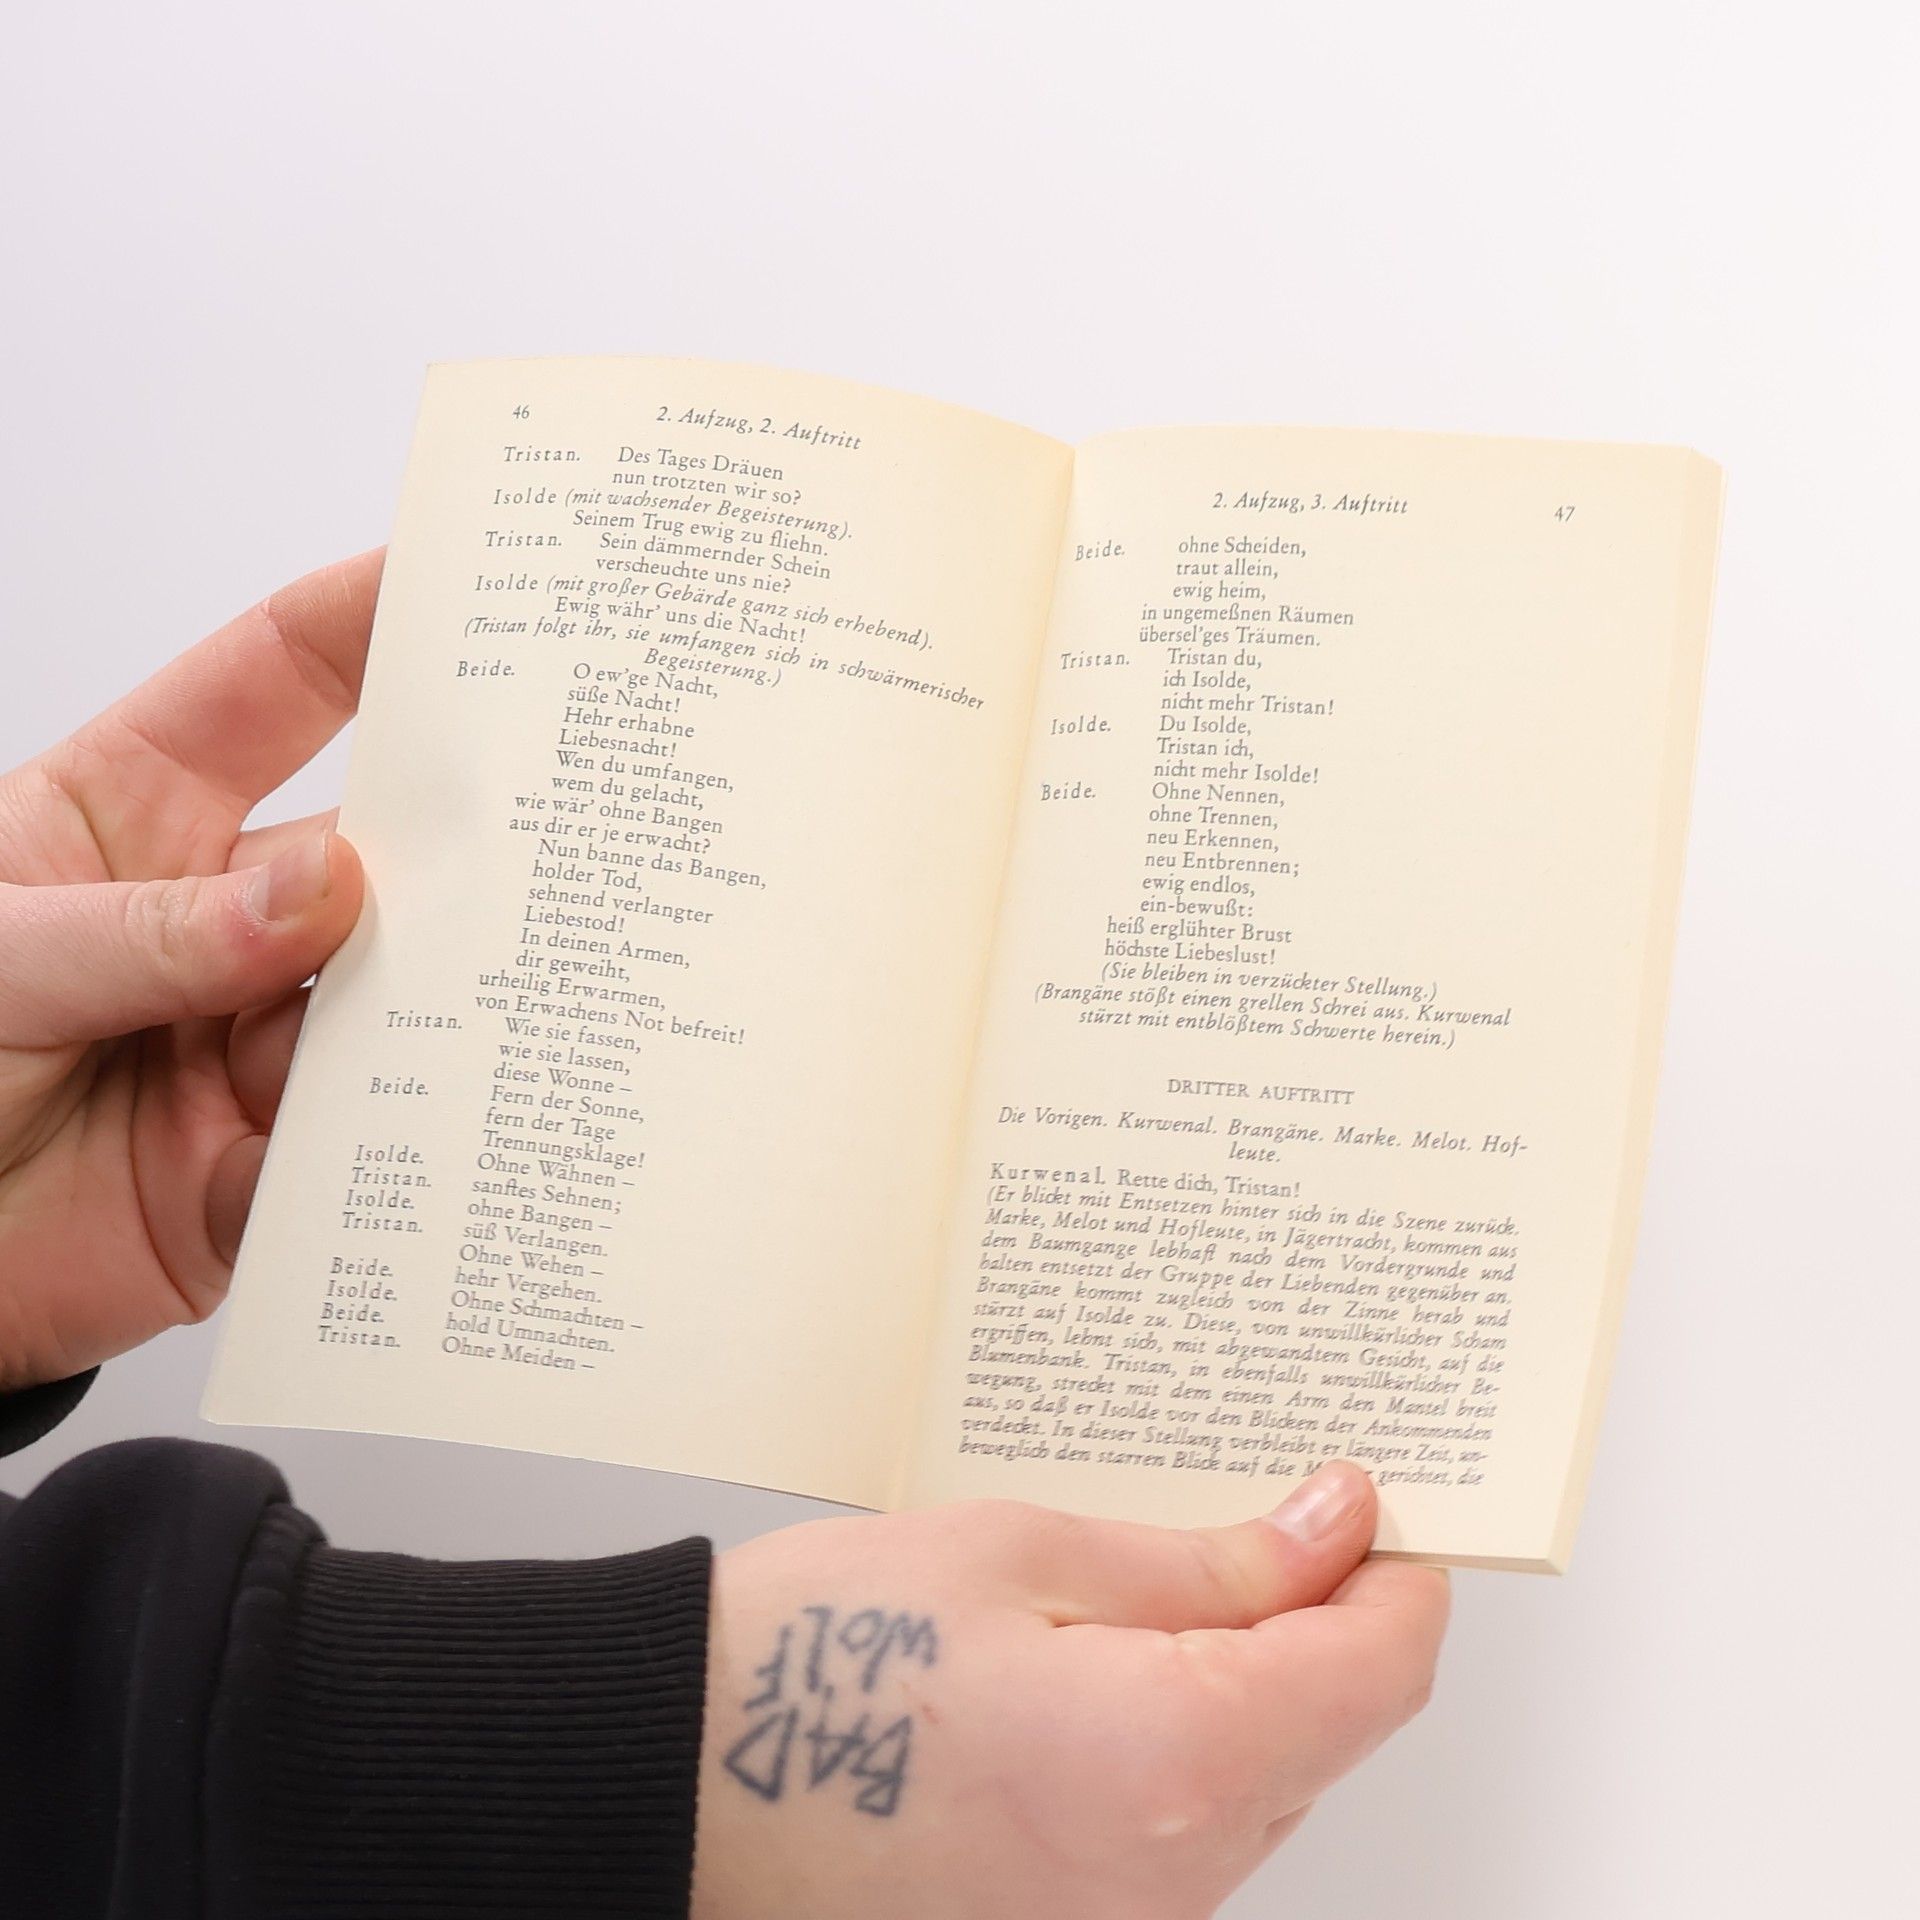 46
2. Aufzug, 2. Auftritt
Tristan. Des Tages Dräuen
nun trotzten wir so?
Isolde (mit wachsender Begeisterung).
Seinem Trug ewig zu fliehn.
Tristan. Sein dämmernder Schein
verscheuchte uns nie?
Isolde (mit großer Gebärde ganz sich erhebend).
Ewig währ’ uns die Nacht!
(Tristan folgt ihr, sie umfangen sich in schwärmerischer
Begeisterung.)
Beide. O ew’ge Nacht,
süße Nacht!
Hehr erhabne
Liebesnacht!
Wen du umfangen,
wem du gelacht,
wie wär’ ohne Bangen
aus dir er je erwacht?
Nun banne das Bangen,
holder Tod,
sehnend verlangter
Liebestod!
In deinen Armen,
dir geweiht,
urheilig Erwarmen,
von Erwachens Not befreit!
Tristan. Wie sie fassen,
wie sie lassen,
diese Wonne –
Beide. Fern der Sonne,
fern der Tage
Trennungsklage!
Isolde. Ohne Wähnen –
Tristan. sanftes Sehnen;
Isolde. ohne Bangen –
Tristan. süß Verlangen.
Ohne Wehen –
Beide. hehr Vergehen.
Isolde. Ohne Schmachten –
Beide. hold Umnachten.
Tristan. Ohne Meiden –
2. Aufzug, 3. Auftritt
47
Beide. ohne Scheiden,
traut allein,
ewig heim,
in ungemeßnen Räumen
übersel’ges Träumen.
Tristan. Tristan du,
ich Isolde,
nicht mehr Tristan!
Isolde. Du Isolde,
Tristan ich,
nicht mehr Isolde!
Beide. Ohne Nennen,
ohne Trennen,
neu Erkennen,
neu Entbrennen;
ewig endlos,
ein-bewußt:
heiß erglühter Brust
höchste Liebeslust!
(Sie bleiben in verzückter Stellung.)
(Brangäne stößt einen grellen Schrei aus. Kurwenal
stürzt mit entblößtem Schwerte herein.)
DRITTER AUFTRITT
Die Vorigen. Kurwenal. Brangäne. Marke. Melot. Hof-
leute.
Kurwenal. Rette dich, Tristan!
(Er blickt mit Entsetzen hinter sich in die Szene zurück.
Marke, Melot und Hofleute, in Jägertracht, kommen aus
dem Baumgange lebhaft nach dem Vordergrunde und
halten entsetzt der Gruppe der Liebenden gegenüber an.
Brangäne kommt zugleich von der Zinne herab und
stürzt auf Isolde zu. Diese, von unwillkürlicher Scham
ergriffen, lehnt sich, mit abgewandtem Gesicht, auf die
Blumenbank. Tristan, in ebenfalls unwillkürlicher Be-
wegung, streckt mit dem einen Arm den Mantel breit
aus, so daß er Isolde vor den Blicken der Ankommenden
verdeckt. In dieser Stellung verbleibt er längere Zeit, un-
beweglich den starren Blick auf die gerichtet, die
BAD
WOLF